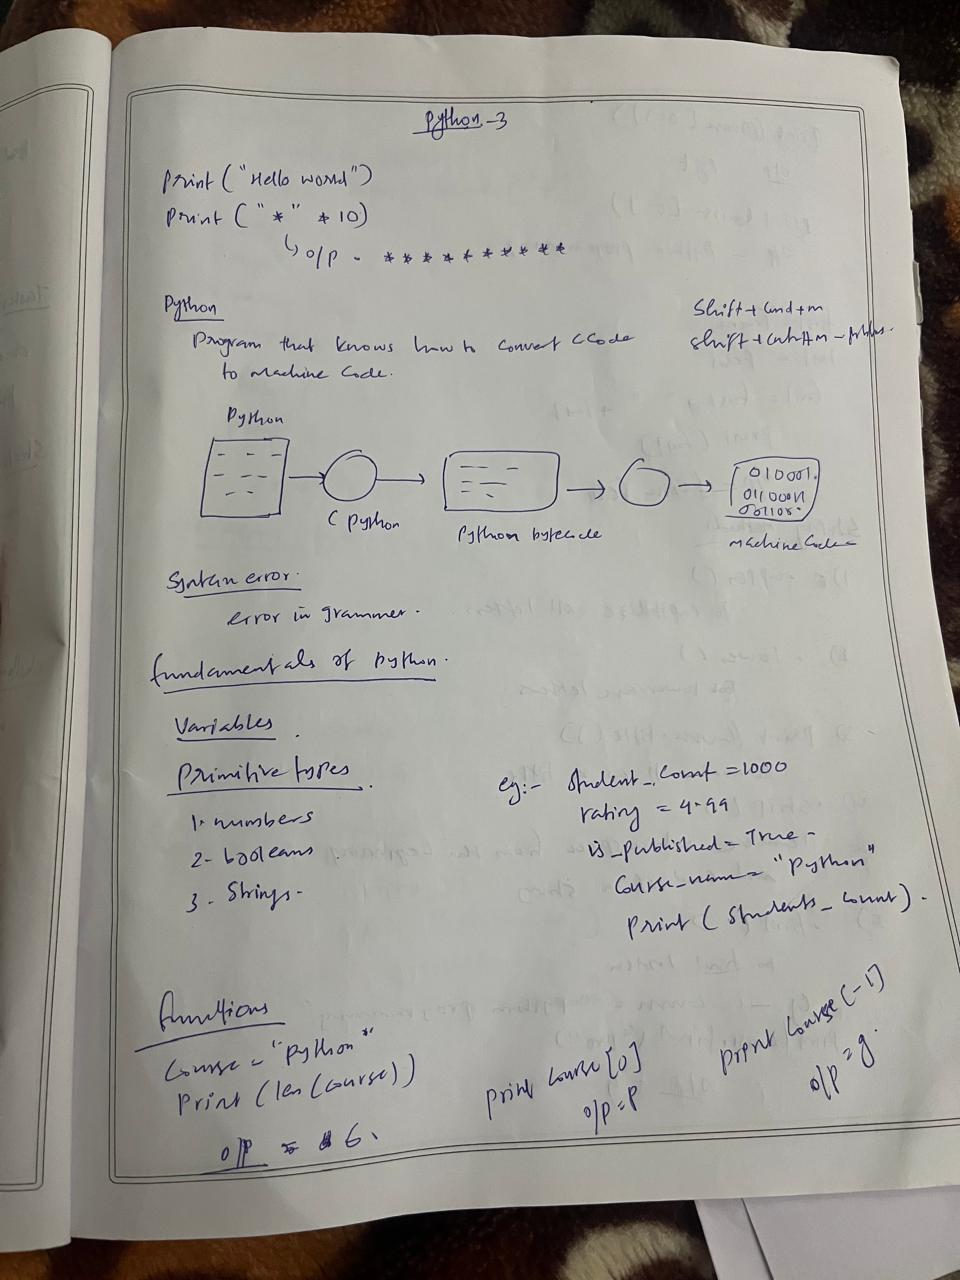 Python-3
print ("Hello world")
print ("*" * 10)
↳ o/p - * * * * * * * * * *
Python
Program that knows how to convert cCode
to Machine Code.
Shift + Cmd + m
shift + Cntrl + m -
Python
C Python
Python bytecode
010001.
machine Code
Syntax error.
error in grammer.
fundamentals of python.
Variables
Primitive types
1. numbers
2- booleans
3- Strings-
eg:- Student_Count = 1000
rating = 4.99
is_published = True -
Course_name = "Python"
Print ( Students_Count ).
functions
Course = "python"
Print (len (course))
o/p = 6.
print course [0]
o/p = P
print course (-1]
o/p = g.